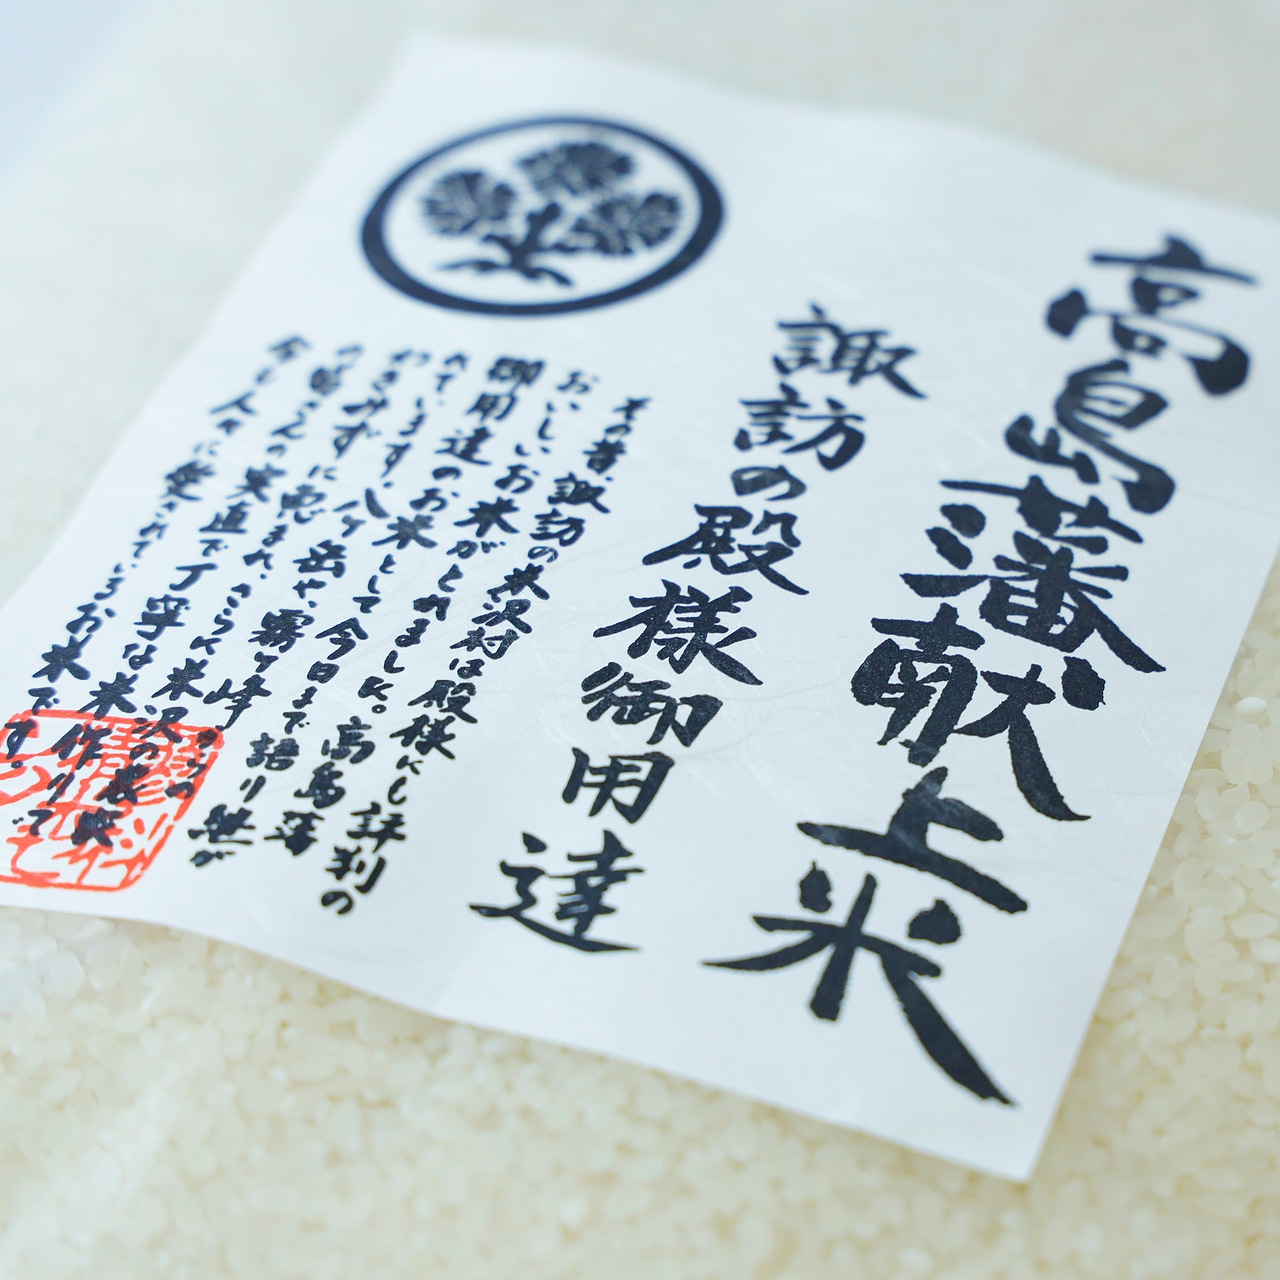 高島藩献上米
諏訪の殿様御用達
その昔、諏訪の米沢村は殿様にも評判の
おいしいお米がとれました。高島藩
御用達のお米として今日まで語り継が
れています。八ヶ岳や、霧ヶ峰
わき水に恵まれ、さらに米沢の農家
の皆さんの実直で丁寧な米作りで
今も人々に愛されているお米です。